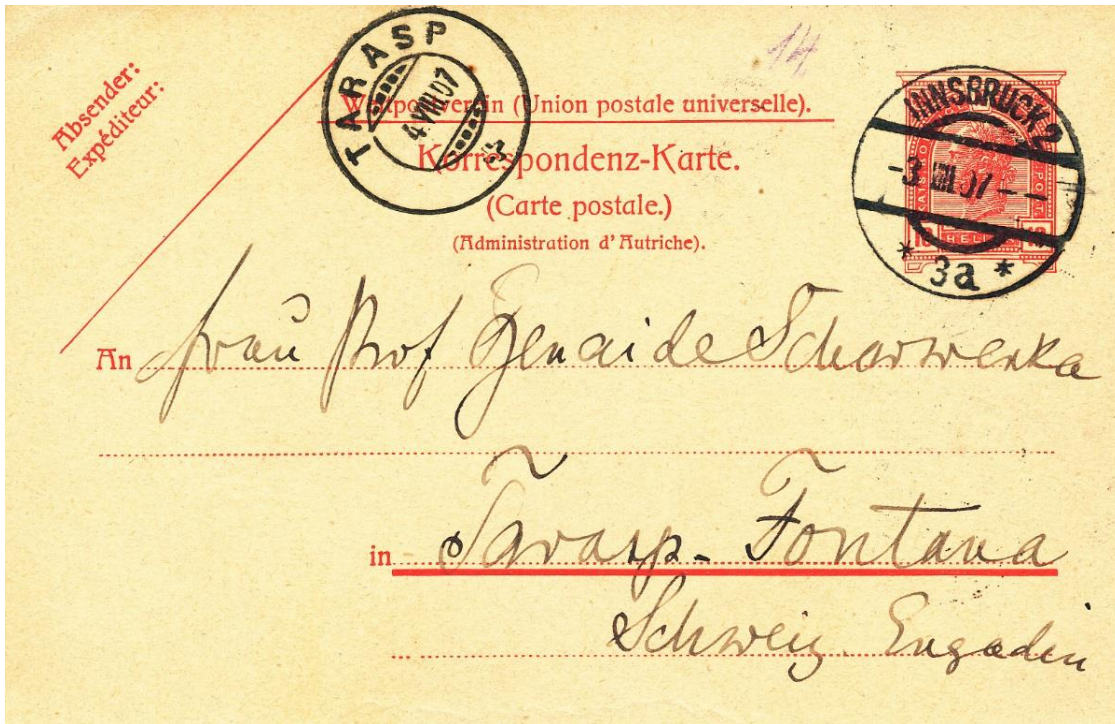 Absender:
Expéditeur:
TARASP
4.VIII.07
Weltpostverein (Union postale universelle).
Korrespondenz-Karte.
(Carte postale.)
(Administration d'Autriche).
INNSBRUCK 2
-3.VIII.07--
* 3a *
10 HELLER 10
An Frau Prof Zenaide Scharwenka
in Tarasp-Fontana
Schweiz Engadin